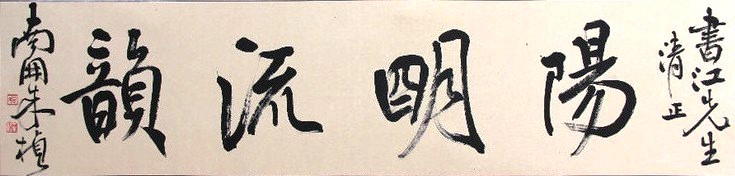 書江先生
清正
陽明流韻
南開朱楨